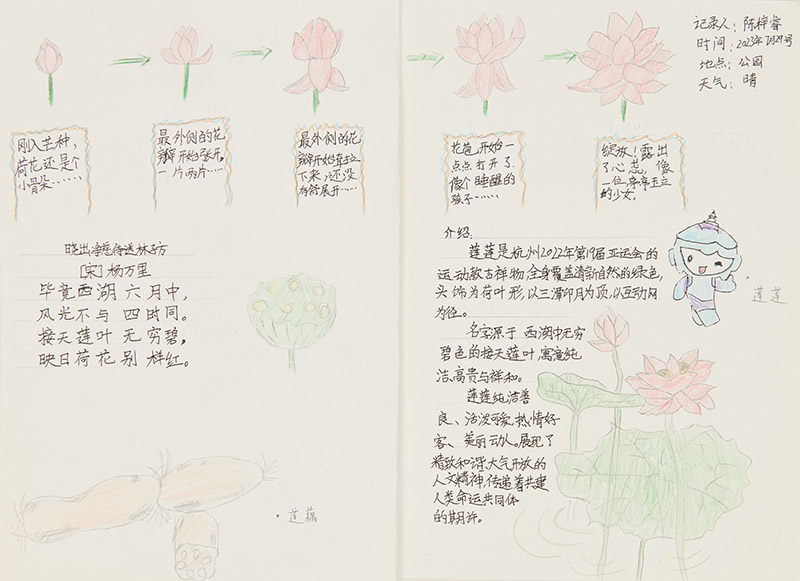 刚入芒种，
荷花还是个
小骨朵……
最外侧的花
瓣开始张开。
一片两片……
最外侧的花
瓣开始耷拉
下来，还没
有舒展开……
晓出净慈寺送林子方
[宋]杨万里
毕竟西湖六月中，
风光不与四时同。
接天莲叶无穷碧，
映日荷花别样红。
莲藕
记录人：陈梓睿
时间：2023年7月29号
地点：公园
天气：晴
花苞，开始一
点点打开了.
像个睡醒的
孩子……
绽放！露出
了心蕊，像
一位亭亭玉立
的少女。
介绍：
莲莲是杭州2022年第19届亚运会的
运动款吉祥物，全身覆盖清新自然的绿色，
头饰为荷叶形，以三潭印月为顶，以互动网
为径。
名字源于西湖中无穷
碧色的接天莲叶，寓意纯
洁、高贵与祥和。
莲莲纯洁善
良、活泼可爱、热情好
客、美丽动人。展现了
精致和谐、大气开放的
人文精神，传递着共建
人类命运共同体
的期许。
莲莲